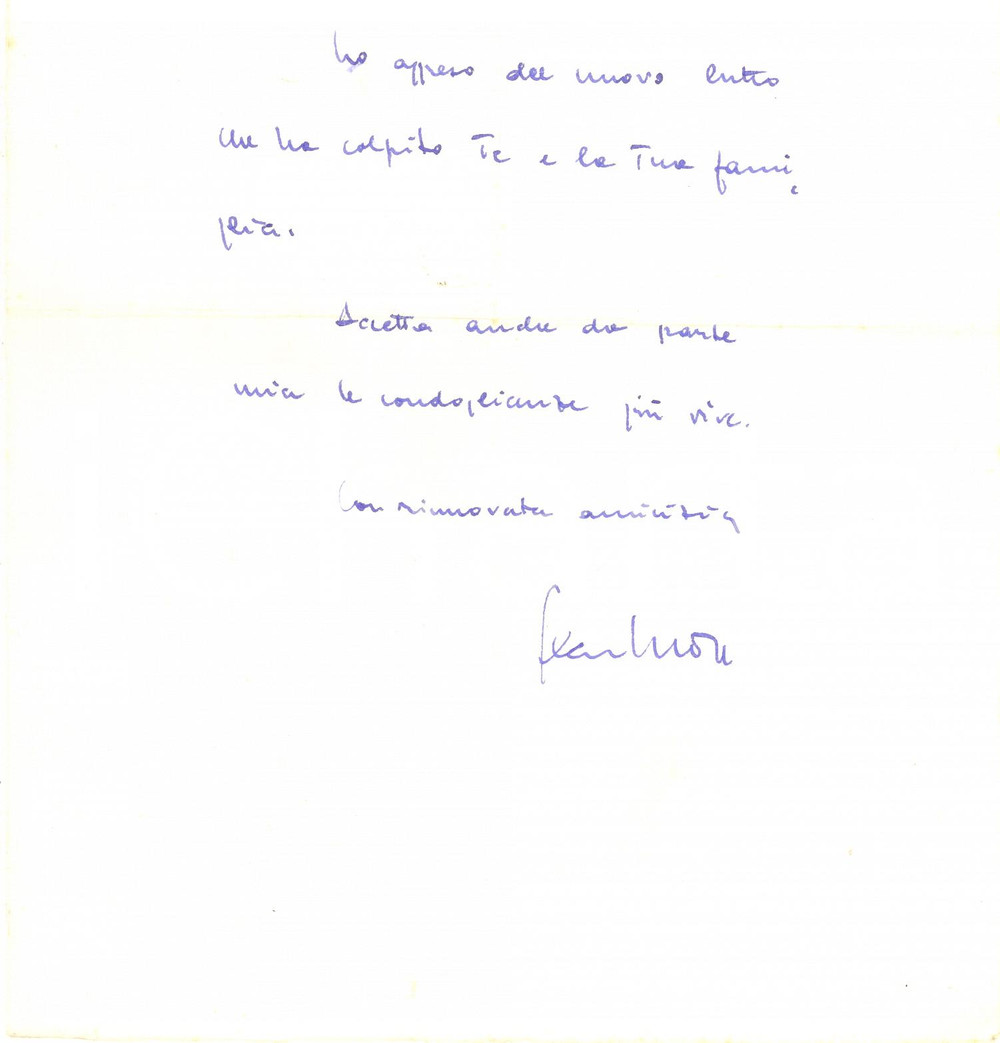 ho appreso del nuovo lutto
che ha colpito Te e la Tua fami
glia.
Accetta anche da parte
mia le condoglianze più vive.
Con rinnovata amicizia